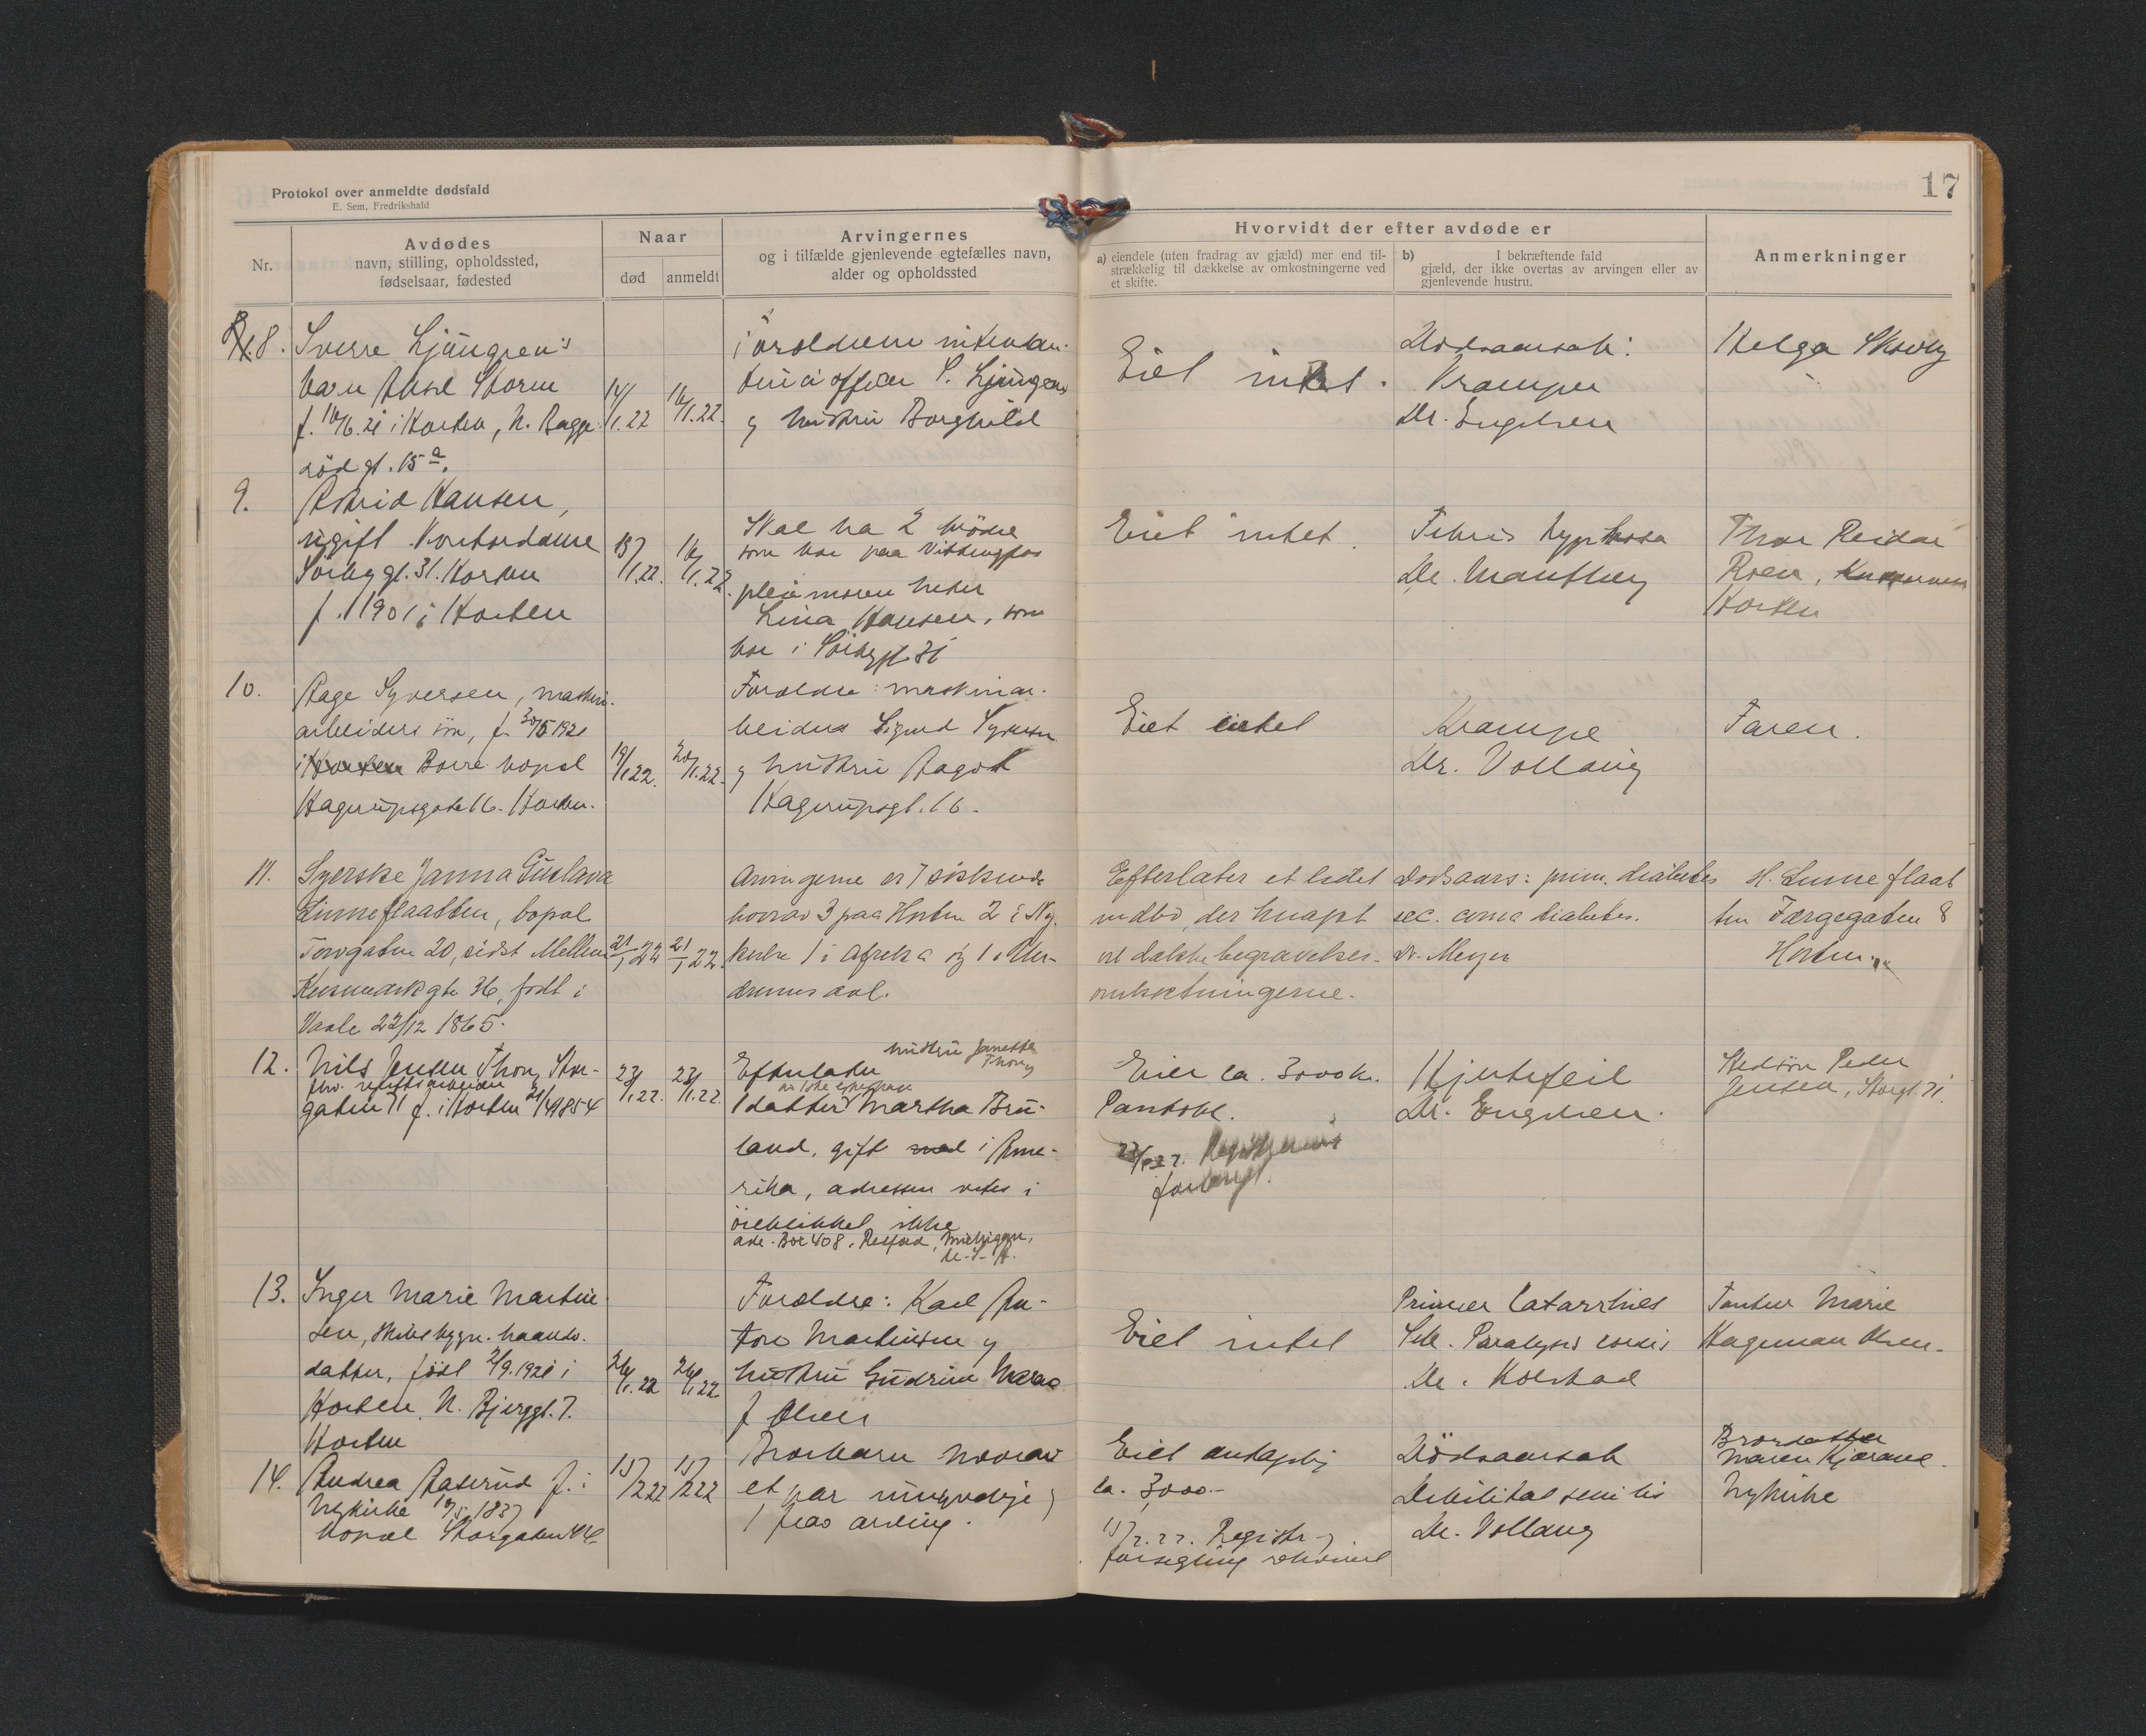 Protokol over anmeldte dødsfald
E. Sem, Fredrikshald
17
Nr.
Avdødes
navn, stilling, opholdssted,
fødselsaar, fødested
Naar
død
anmeldt
Arvingernes
og i tilfælde gjenlevende egtefælles navn,
alder og opholdssted
Hvorvidt der efter avdøde er
a) eiendele (uten fradrag av gjæld) mer end til-
strækkelig til dækkelse av omkostningerne ved
et skifte.
b) I bekræftende fald
gjæld, der ikke overtas av arvingen eller av
gjenlevende hustru.
Anmerkninger
8.
Sverre Ljungren's
barn Aksel Storm
i Horten, N. Bagge
rødgt. 15a.
14/1.22
16/1.22.
S. Ljungren
og hustru Borghild
Eiet intet.
Dødsaarsak:
Kramper
Dr. Engelsen
Helga
9.
Astrid Hansen,
ugift Kontordame
Sørbygt. 31. Horten
f. 1901 i Horten
15/1.22.
16/1.22.
Skal ha 2 brødre
som bor paa Vittingfos
pleiemoren heter
Lina Hansen, som
bor i Sørbygt. 31
Eiet intet.
Febris
Dr.
Thor Reidar
Roen,
Horten
10.
Aage Syversen, maskin-
arbeiders søn, f. 1920
i Horten Borre bopæl
Hagerupsgate 16. Horten.
19/1.22.
20/1.22.
Forældre: maskinar-
beider Sigurd Syversen
og hustru Aagot
Hagerupsgt. 16.
Eiet intet
Krampe
Dr. Vollaug
Faren.
11.
Syerske Janna Gustava
Linneflaatten, bopæl
Torvgaten 20, sidst Mellem
gt. 36, født i
Vaale 22/12 1865.
21/1 22
21/1 22.
Arvingerne er 7 søskende
hvorav 3 paa Horten 2 i Ny-
kirke 1 i Afrika og 1 i
Efterlater et lidet
indbo, der knapt
vil dække begravelses-
omkostningerne.
Dødsaars: prim. diabetes
sec. coma diabetes.
Dr. Meyer
H. Linneflaat
ten Færgegaten 8
Horten.
12.
Nils Jensen Thon, Stor-
gaten 71 f. i Horten 1854
23/1.22.
23/1.22.
hustru
Thon
Efterlater
1 datter Martha Bru-
land, gift med i Ame-
rika, adressen vites i
øieblikket ikke
adr. Box 408, Michigan,
U.S.A.
Eier ca. 3000 kr.
Pantobl.
Hjertefeil
Dr. Engelsen.
Stedsøn Peder
Jensen, Storgt. 71.
13.
Inger Marie Martin
sen, skibsbygn. haandv.
datter, født 2/9.1921 i
Horten N. Bjerggt. 7.
Horten
26/1.22
26/1.22
Forældre: Karl An-
ton Martinsen og
hustru Gudrun
f. Olsen
Eiet intet
Primær Catarrhus
Sek. Paralysis cordis
Dr. Kolstad
Tanten Marie
Hageman Olsen.
14.
Andrea Aaserud f. i
Nykirke 1837
bopæl Storgaten
15/2 22
15/2 22
Brorbarn hvorav
et par umyndige og
1 arving.
Eiet antagelig
ca. 3000.-
Registr. og
forsegling
Dødsaarsak
Debilitas senilis
Dr. Vollaug
Brordatter
Maren
Nykirke